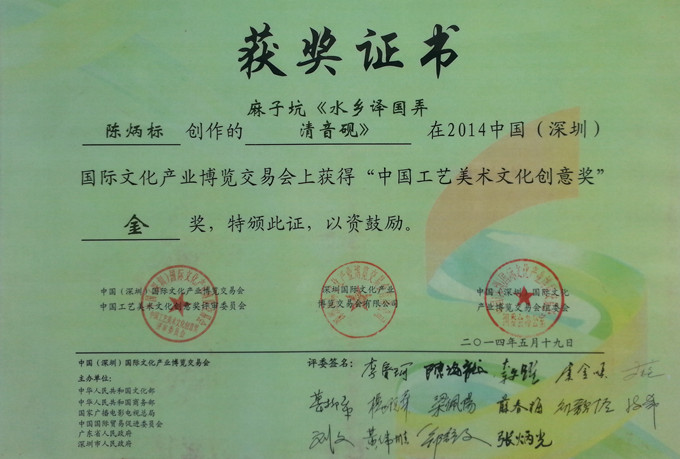 获奖证书
麻子坑《水乡译国弄
陈炳标 创作的 清音砚》 在2014中国（深圳）
国际文化产业博览交易会上获得“中国工艺美术文化创意奖”
金 奖，特颁此证，以资鼓励。
中国（深圳）国际文化产业博览交易会
中国工艺美术文化创意奖评审委员会
深圳国际文化产业
博览交易会有限公司
中国（深圳）国际文化
产业博览交易会组委会
二〇一四年五月十九日
中国（深圳）国际文化产业博览交易会
主办单位：
中华人民共和国文化部
中华人民共和国商务部
国家广播电影电视总局
中国国际贸易促进委员会
广东省人民政府
深圳市人民政府
评委签名：
张炳光